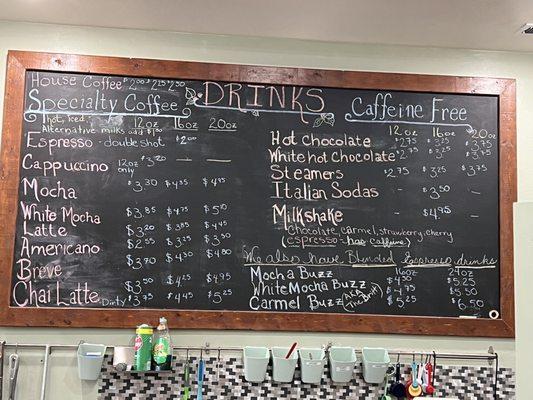 House Coffee $2.00 $2.25 $2.50
DRINKS
Specialty Coffee
hot, iced
12oz 16oz 20oz
Alternative milks add $1.00
Espresso - double shot $2.00
Cappuccino 12oz only $3.20 — —
Mocha $3.30 $4.35 $4.95
White Mocha $3.85 $4.75 $5.10
Latte $3.20 $3.85 $4.45
Americano $2.55 $3.25 $3.50
Breve $3.70 $4.30 $4.80
Chai Latte $3.50 $4.25 $4.95
Dirty $3.75 $4.45 $5.25
Caffeine Free
12oz 16oz 20oz
Hot Chocolate $2.75 $3.25 $3.75
White hot Chocolate $2.75 $3.25 $3.75
Steamers $2.75 $3.25 $3.75
Italian Sodas - $3.50 -
Milkshake - $4.95 -
Chocolate, carmel, strawberry, cherry
(espresso - has caffeine)
We also have Blended Espresso drinks
16oz 24oz
Mocha Buzz $4.50 $5.25
White Mocha Buzz $4.75 $5.50
Carmel Buzz (AKA The Dri) $5.25 $6.50